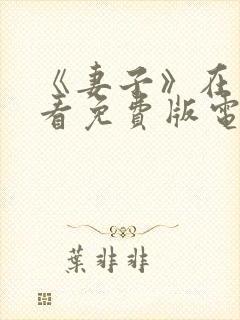 《妻子》在
看免費版電
葉非非